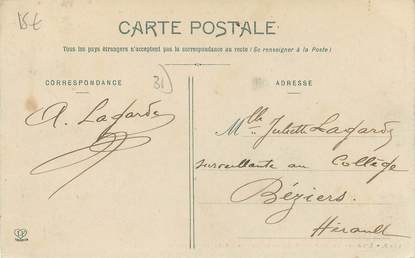 15€
CARTE POSTALE
Tous les pays étrangers n'acceptent pas la correspondance au recto (Se renseigner à la Poste)
31
CORRESPONDANCE
ADRESSE
A. Lagarde
Mlle Juliette Lagarde
surveillante au Collège
Béziers.
Hérault